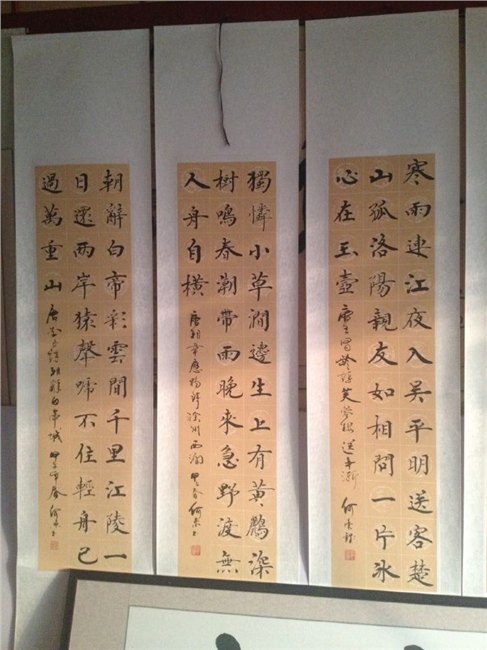 寒雨連江夜入吳平明送客楚
山孤洛陽親友如相問一片冰
心在玉壺
唐王昌齡詩芙蓉樓送辛漸
獨憐小草澗邊生上有黃鸝深
樹鳴春潮帶雨晚來急野渡無
人舟自橫
唐朝韋應物詩滁州西澗
朝辭白帝彩雲間千里江陵一
日還兩岸猿聲啼不住輕舟已
過萬重山